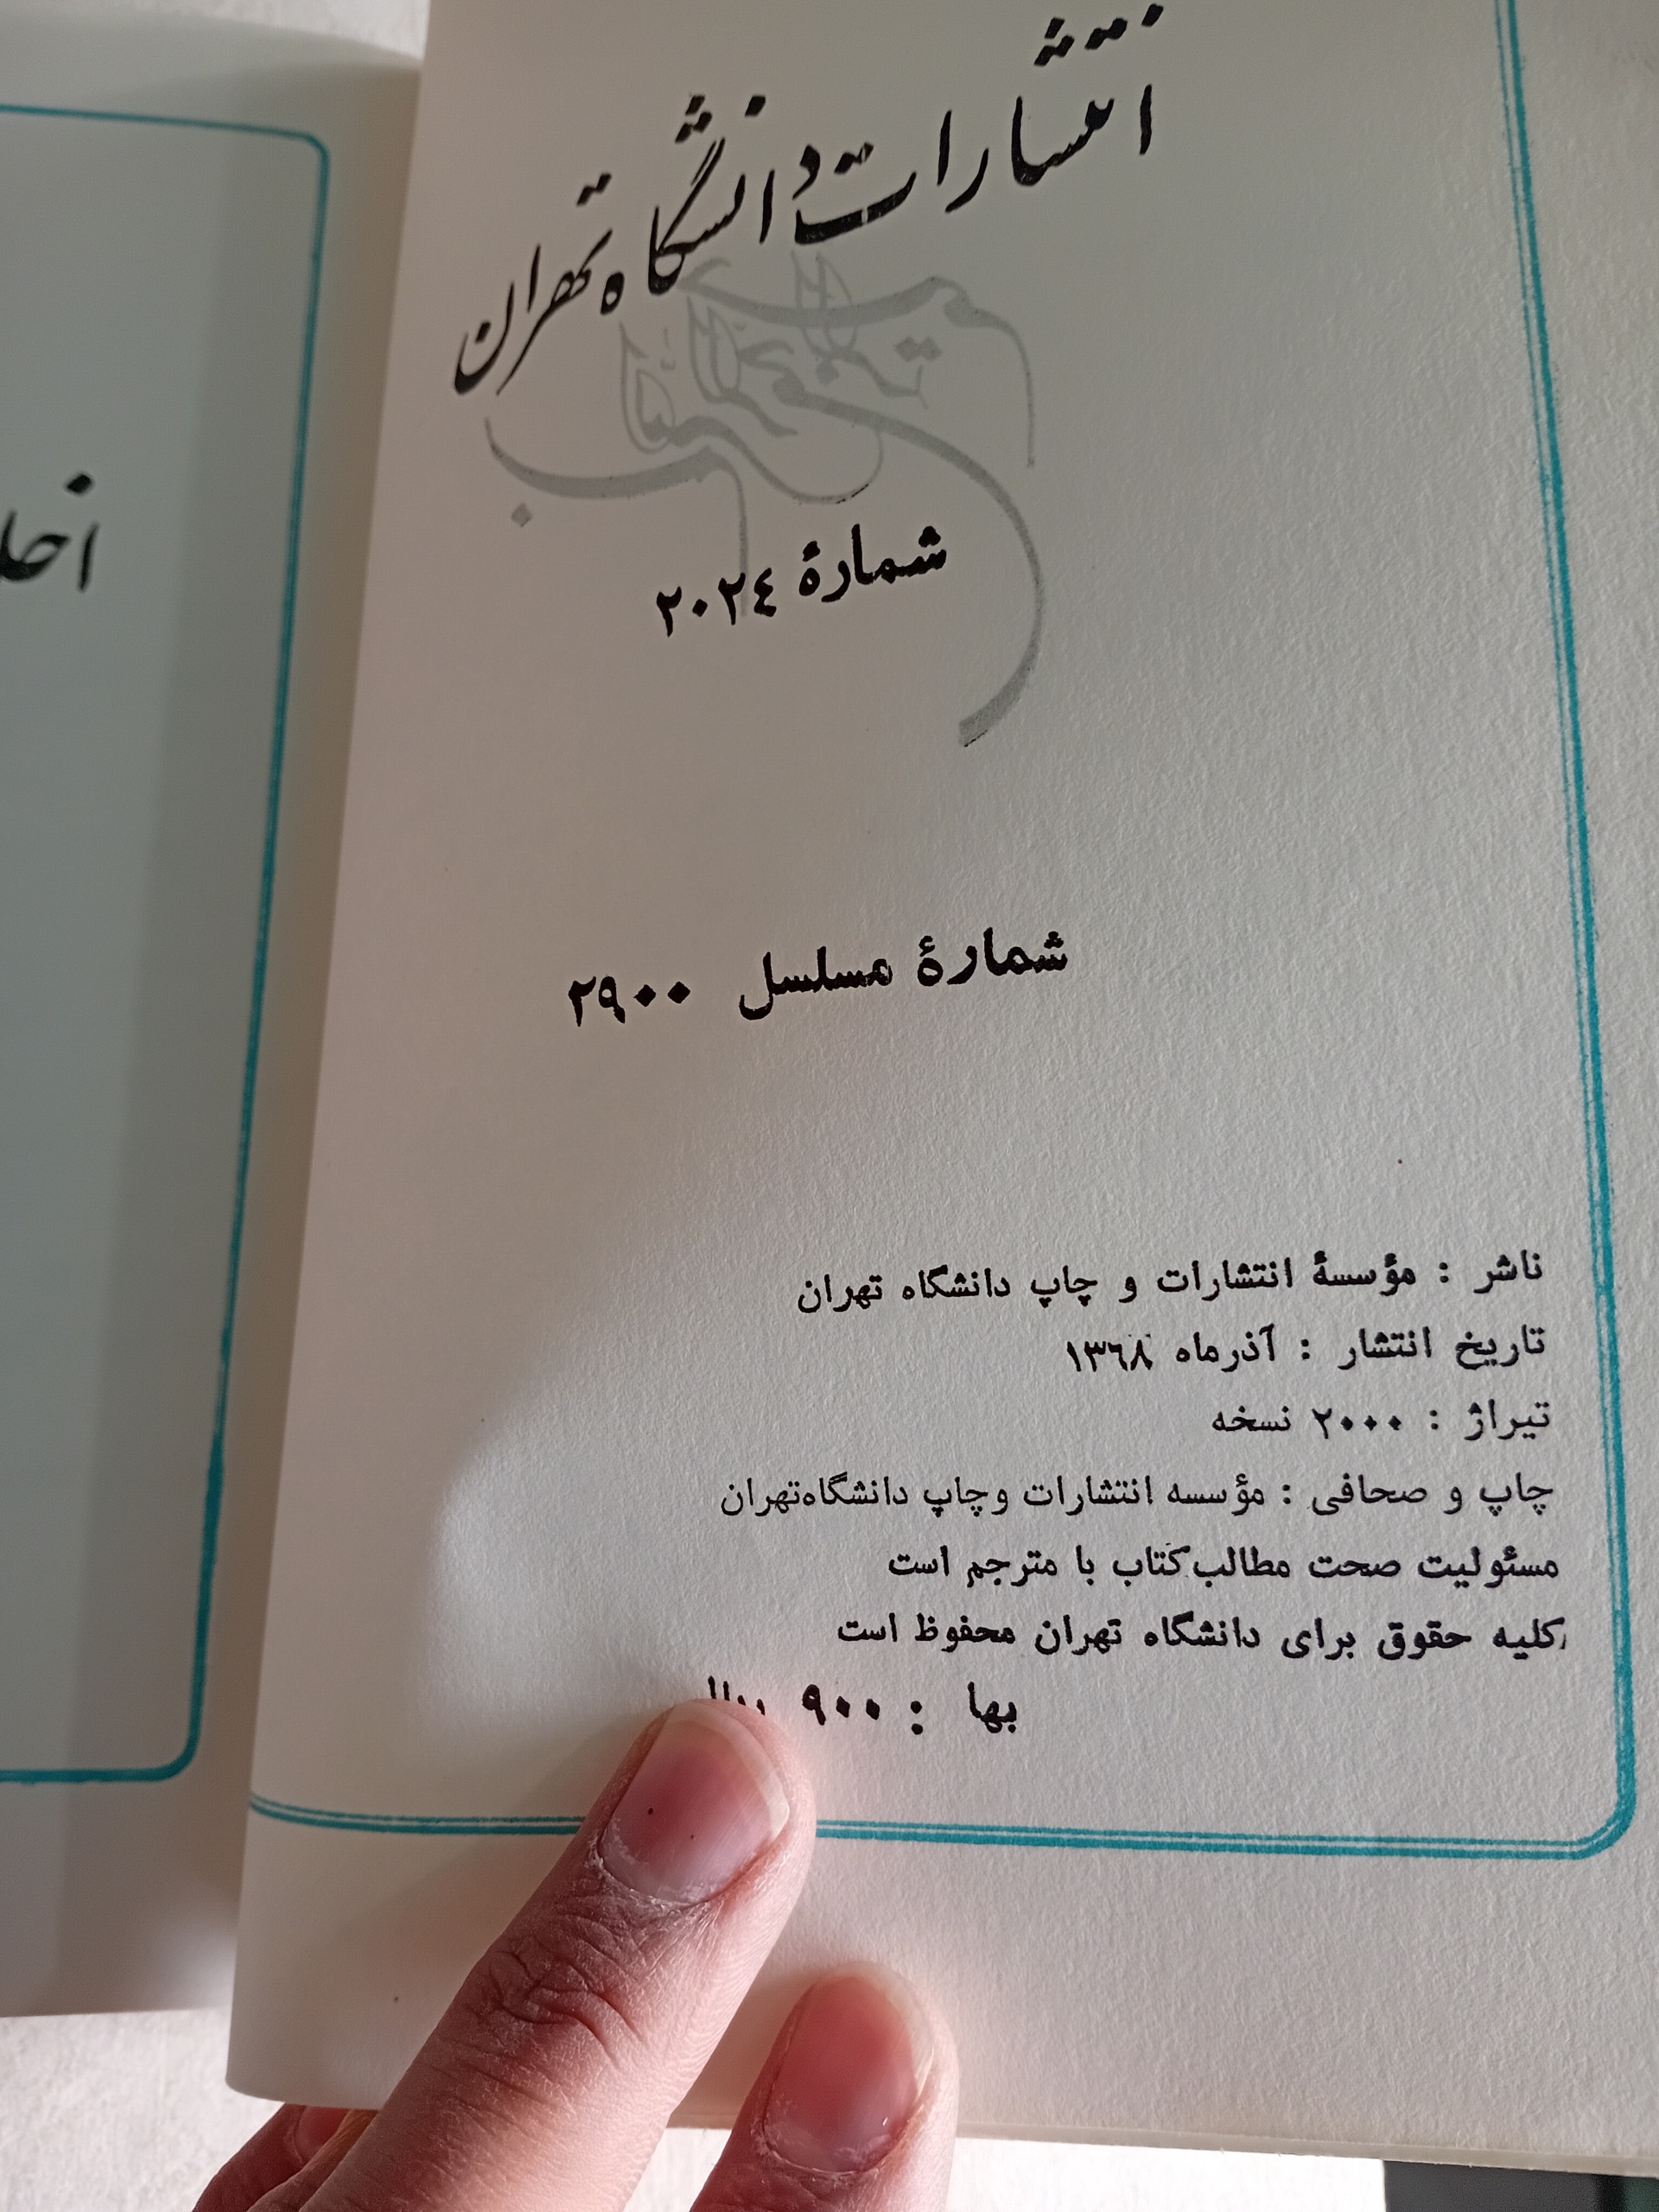 انتشارات دانشگاه تهران
شمارهٔ ۲۰۲٤
شمارهٔ مسلسل ۲۹۰۰
ناشر : مؤسسهٔ انتشارات و چاپ دانشگاه تهران
تاریخ انتشار : آذرماه ۱۳٦۸
تیراژ : ۲۰۰۰ نسخه
چاپ و صحافی : مؤسسه انتشارات وچاپ دانشگاه‌تهران
مسئولیت صحت مطالب کتاب با مترجم است
کلیه حقوق برای دانشگاه تهران محفوظ است
بها : ۹۰۰ ریال